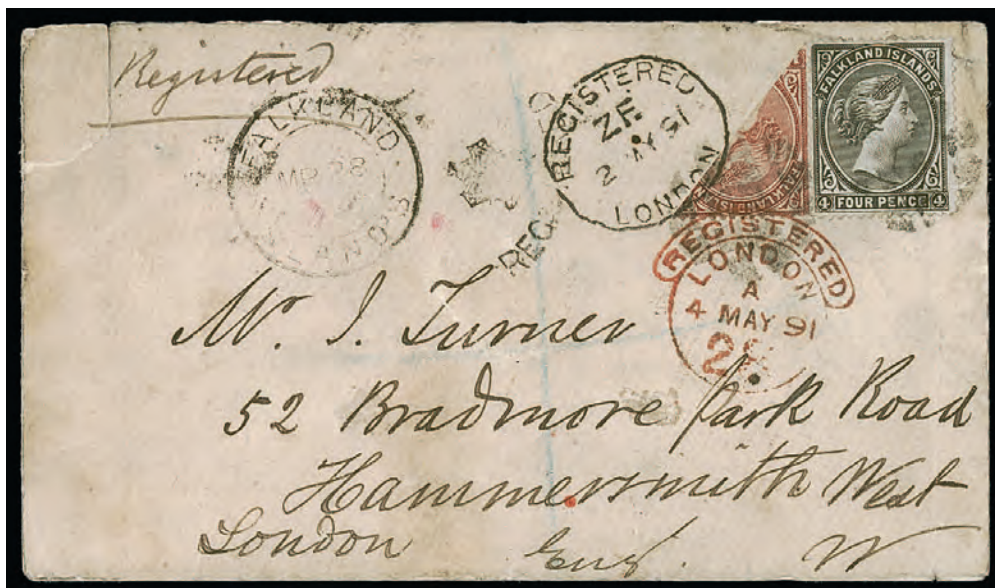 Registered
FALKLAND
MR 28
ISLANDS
REGISTERED
ZE
2 MY 91
LONDON
FALKLAND ISLANDS
4 FOUR PENCE 4
REGISTERED
LONDON
A
4 MAY 91
Mr. J. Turner
52 Bradmore Park Road
Hammersmith West
London Eng. W